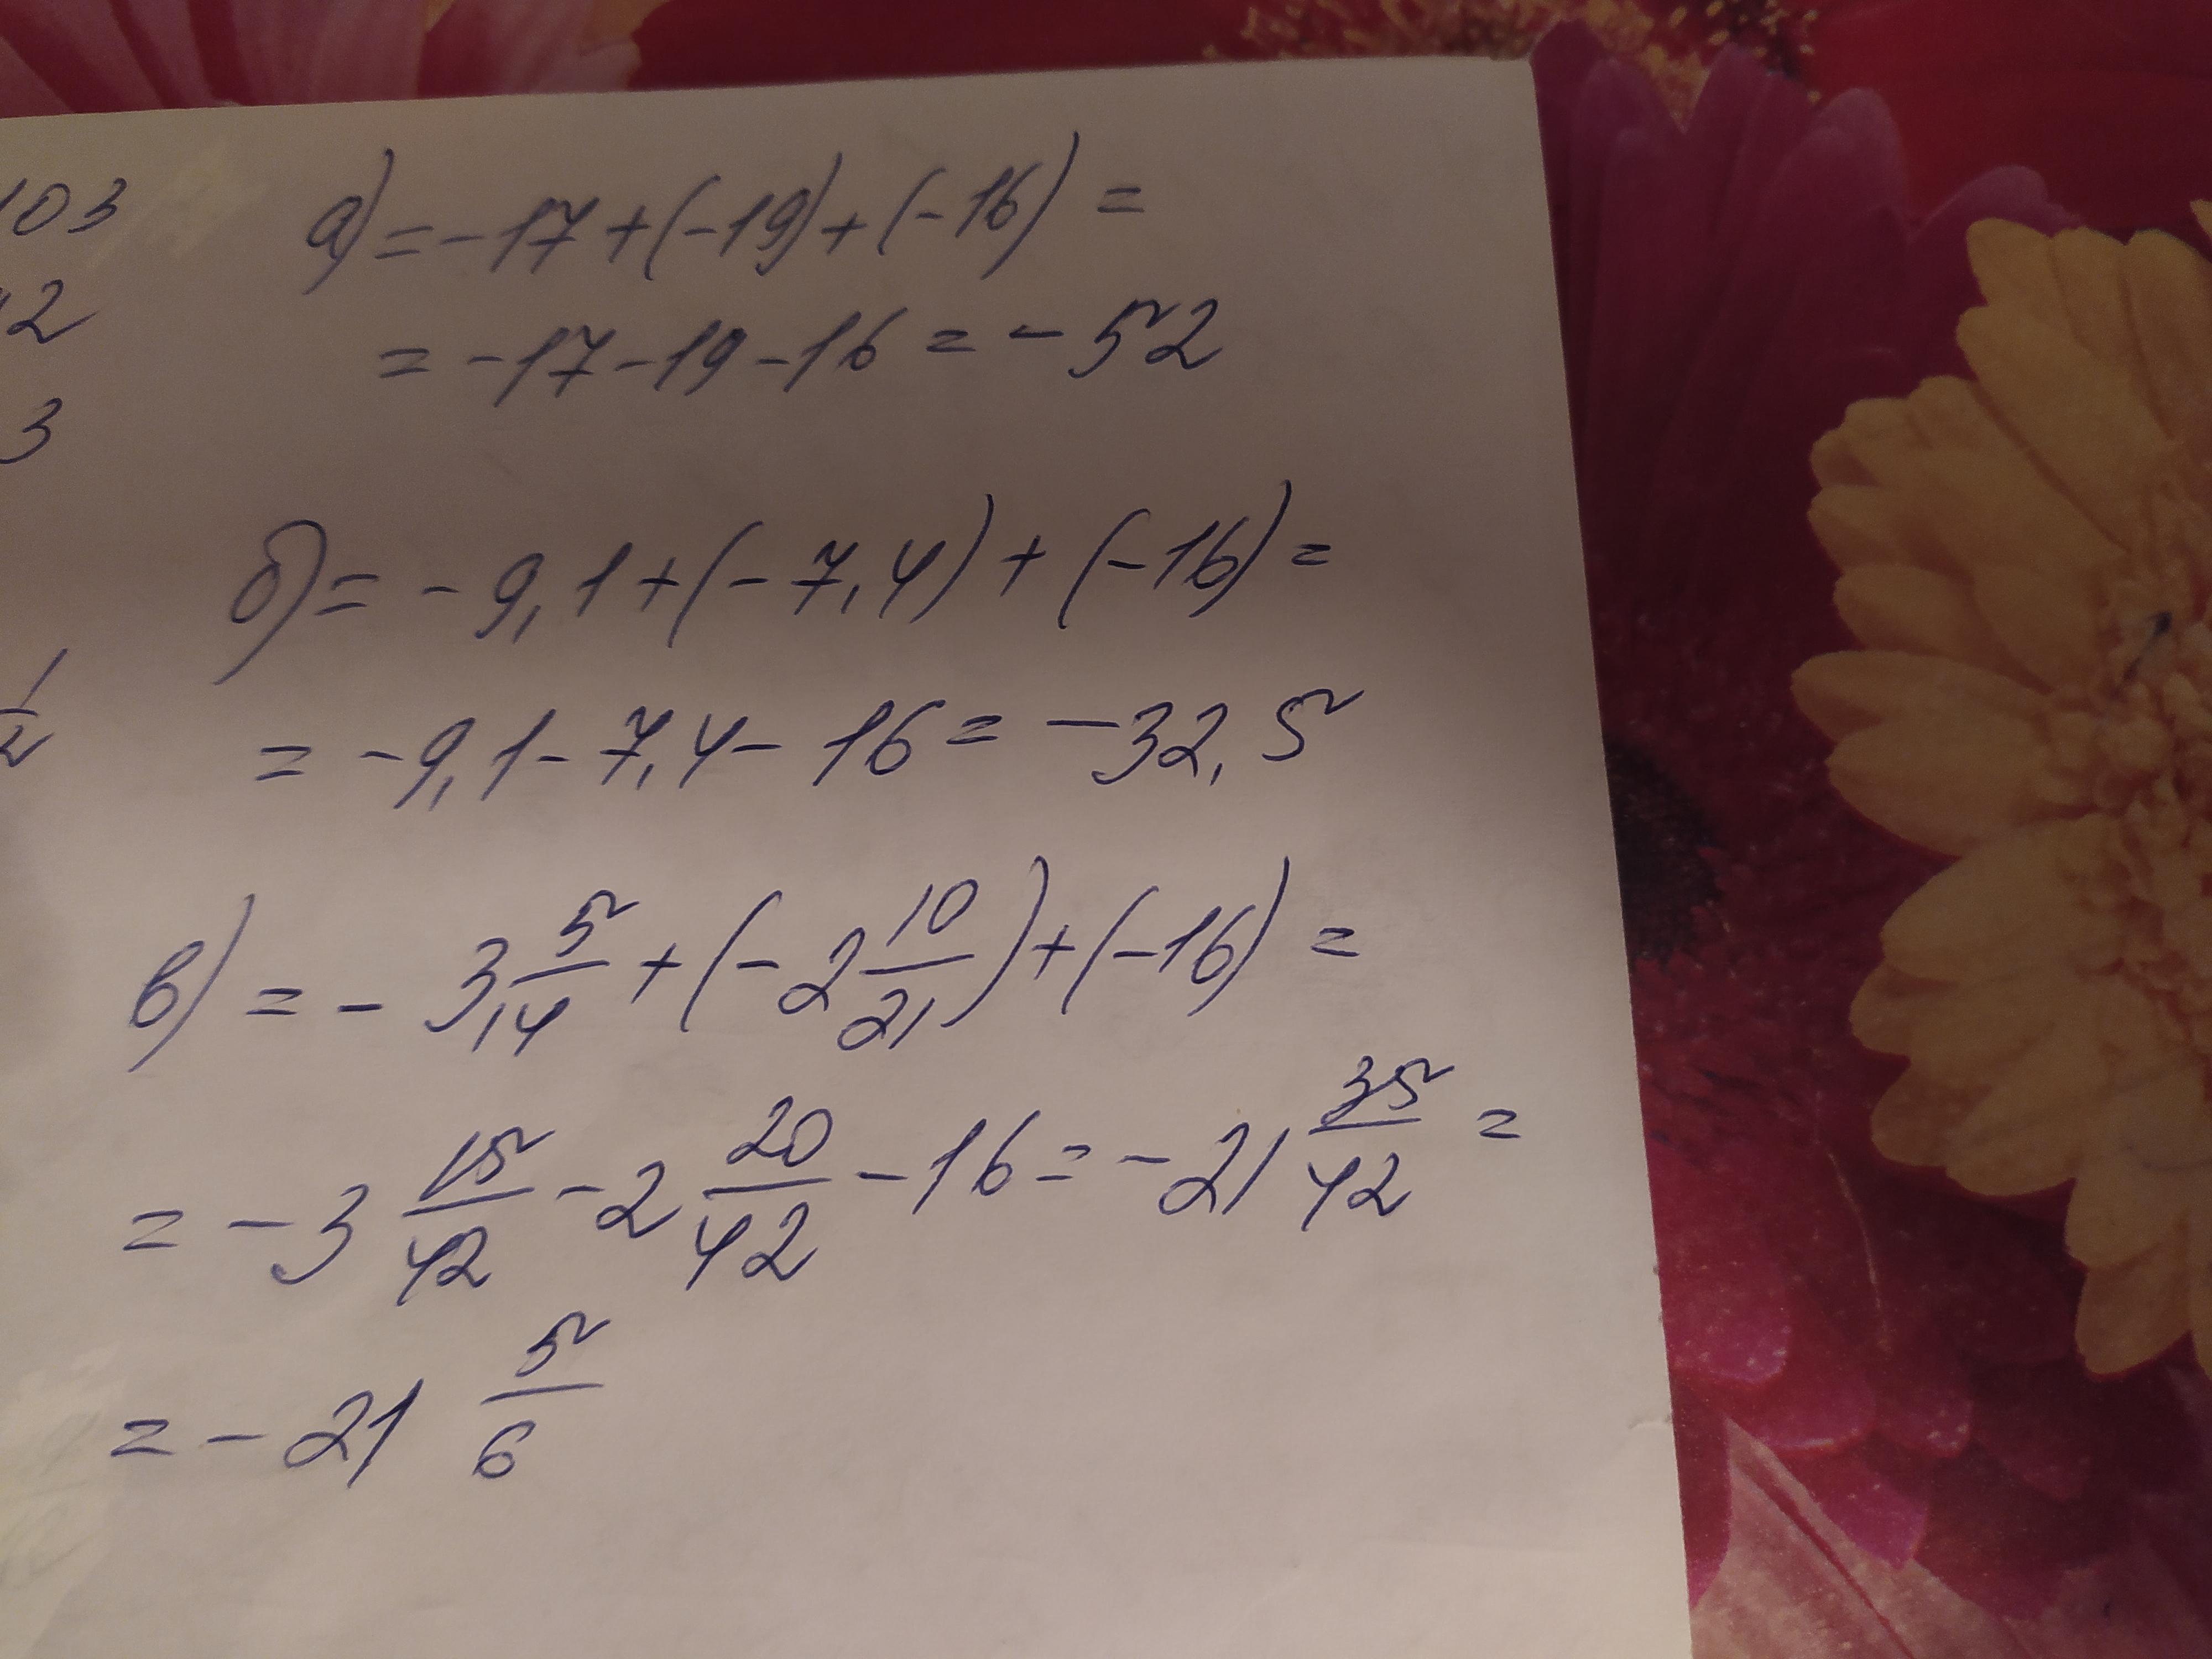 103
а) = -17 + (-19) + (-16) =
2
= -17 - 19 - 16 = - 52
3
б) = - 9,1 + (- 7,4) + (-16) =
1/2
= -9,1 - 7,4 - 16 = -32,5
в) = - 3 5/14 + (-2 10/21) + (-16) =
= -3 15/42 - 2 20/42 - 16 = -21 35/42 =
= - 21 5/6